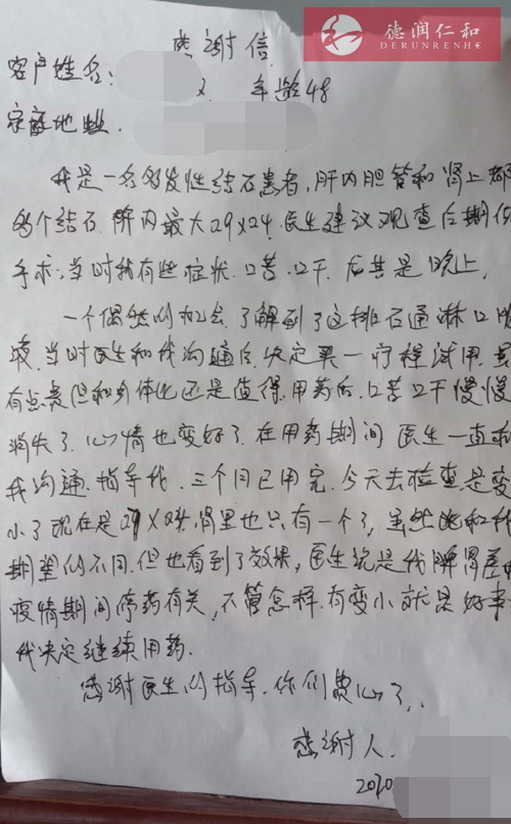 德润仁和
DERUNRENHE
感谢信
客户姓名:
年龄48
家庭地址.
我是一名多发性结石患者,肝内胆管和肾上都
多个结石 肝内最大29×24.医生建议观查后期
手术;当时我有些症状.口苦.口干.尤其是晚上.
一个偶然的机会.了解到了这排石通淋口服
液.当时医生和我沟通后.决定买一疗程试用.
有点贵但和身体比还是值得.用药后.口苦口干慢慢
消失了.心情也变好了.在用药期间 医生一直和
我沟通.指导我.三个月已用完.今天去检查是变
小了现在是 肾里也只有一个了,虽然 和我
期望的不同.但也看到了效果,医生说是我脾胃差
疫情期间停药有关,不管怎样.有变小就是好事
我决定继续用药.
感谢医生的指导.你们费心了..
感谢人.